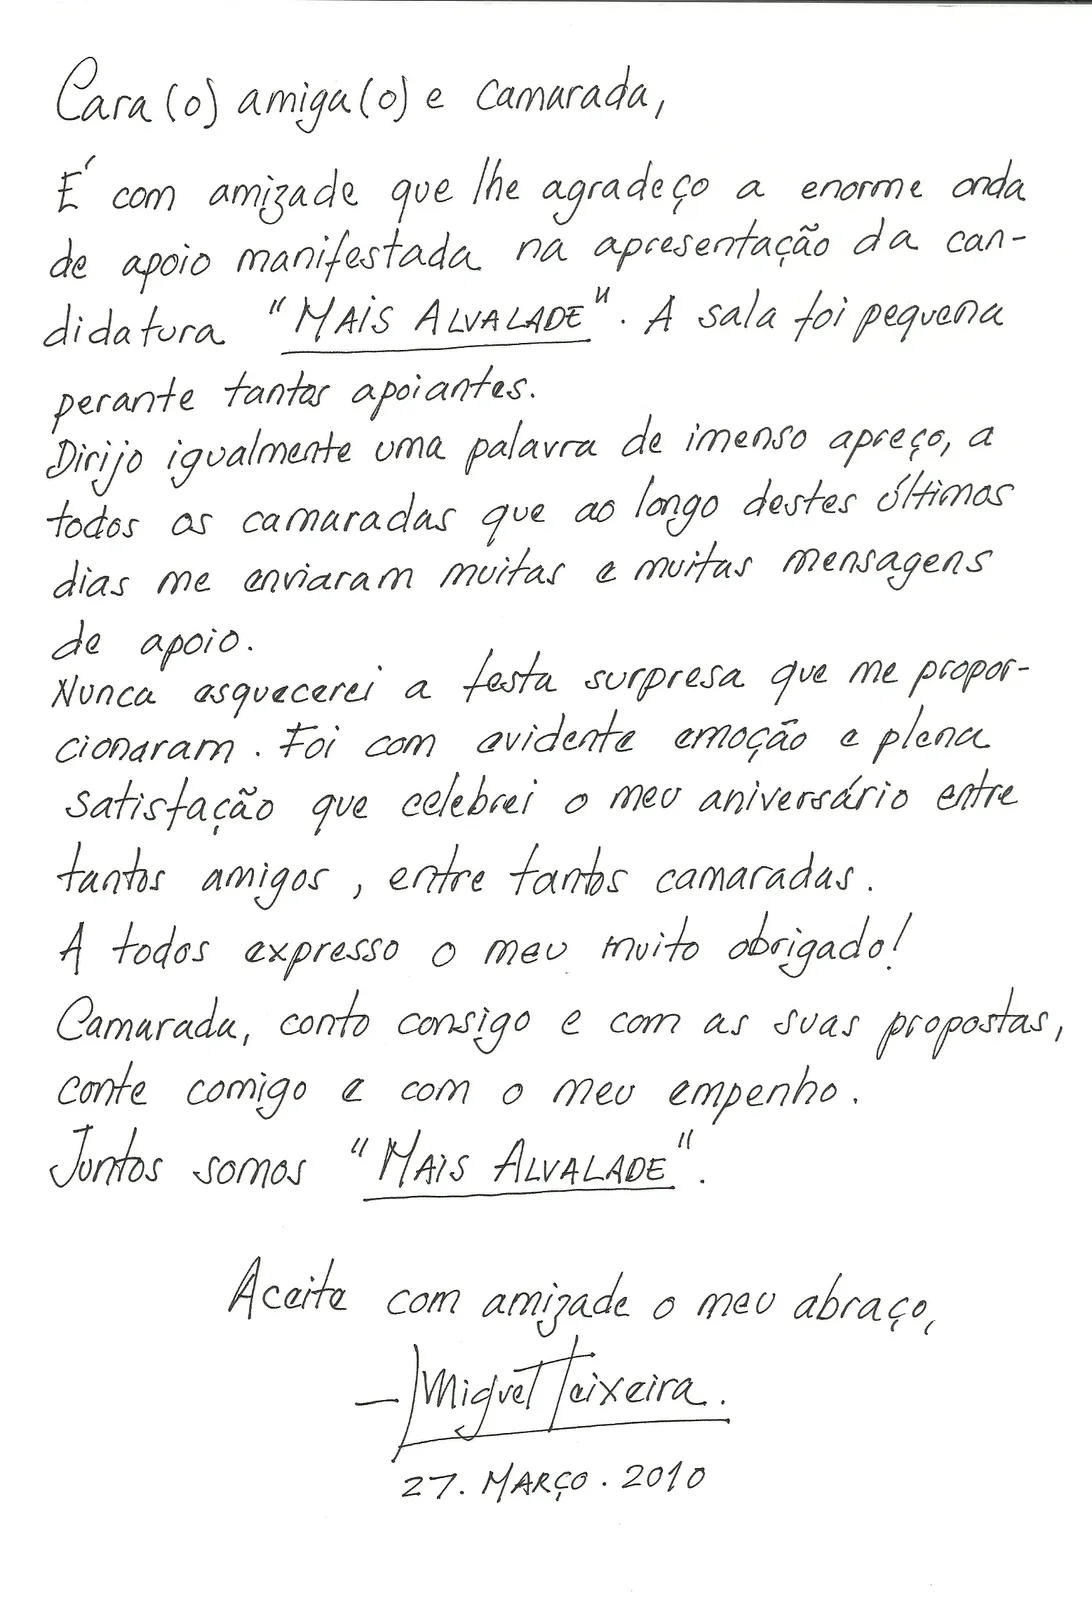 Cara(o) amiga(o) e camarada,
É com amizade que lhe agradeço a enorme onda
de apoio manifestada na apresentação da can-
didatura "MAIS ALVALADE". A sala foi pequena
perante tantos apoiantes.
Dirijo igualmente uma palavra de imenso apreço, a
todos os camaradas que ao longo destes últimos
dias me enviaram muitas e muitas mensagens
de apoio.
Nunca esquecerei a festa surpresa que me propor-
cionaram. Foi com evidente emoção e plena
satisfação que celebrei o meu aniversário entre
tantos amigos, entre tantos camaradas.
A todos expresso o meu muito obrigado!
Camarada, conto consigo e com as suas propostas,
conte comigo e com o meu empenho.
Juntos somos "MAIS ALVALADE".
Aceite com amizade o meu abraço,
- Miguel Teixeira.
27. MARÇO. 2010